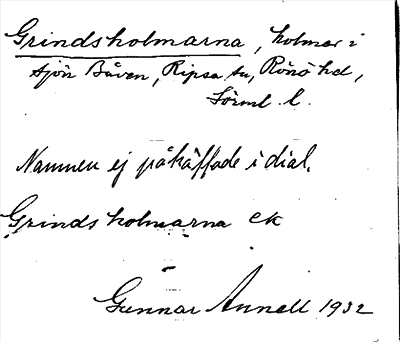 Grindsholmarna, holmar i
sjön Båven, Ripsa sn, Rönö hd,
Sörml. l.
Namnen ej påträffade i dial.
Grindsholmarna ek
Gunnar Annell 1932